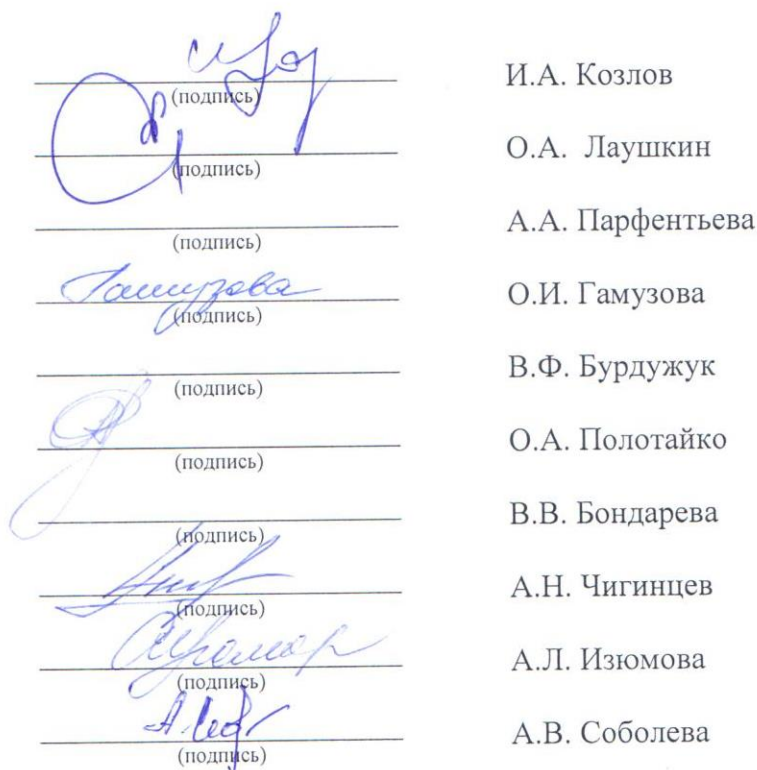 И.А. Козлов
(подпись)
О.А. Лаушкин
(подпись)
А.А. Парфентьева
(подпись)
Гамузова О.И. Гамузова
(подпись)
В.Ф. Бурдужук
(подпись)
О.А. Полотайко
(подпись)
В.В. Бондарева
(подпись)
А.Н. Чигинцев
(подпись)
А.Л. Изюмова
(подпись)
А.В. Соболева
(подпись)